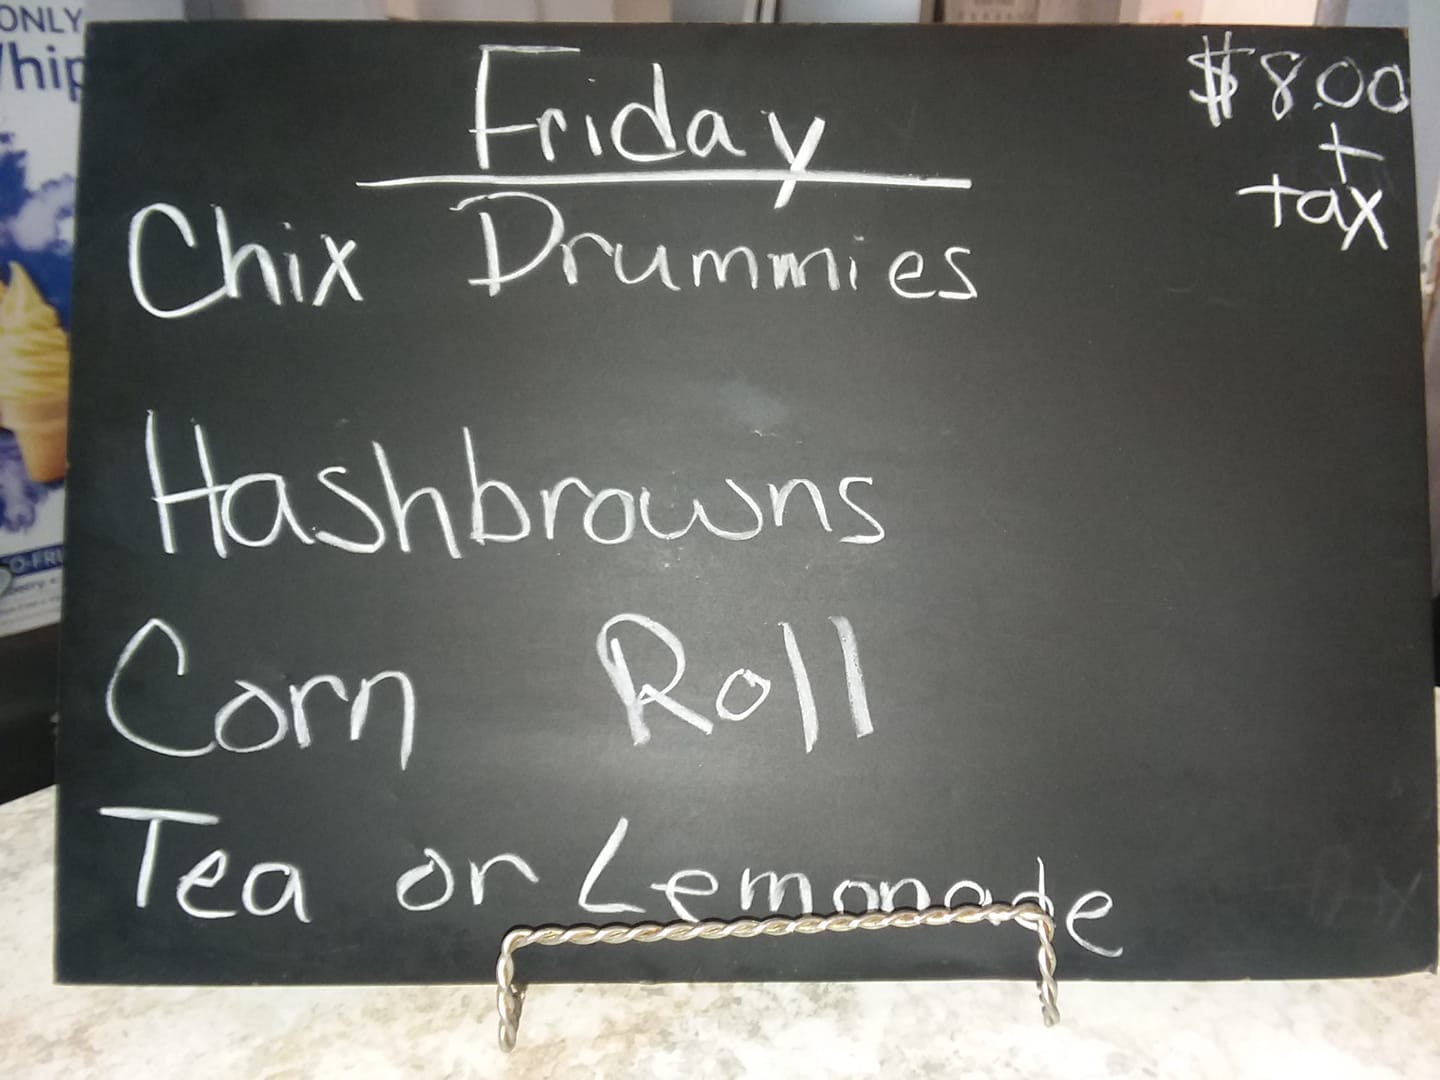 Friday
$8.00
+
tax
Chix Drummies
Hashbrowns
Corn Roll
Tea or Lemonade
ONLY